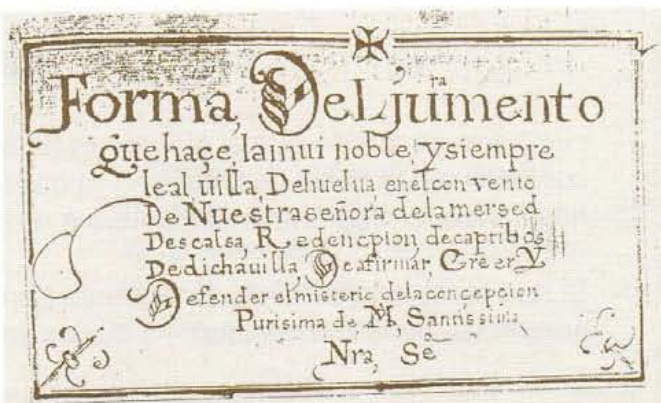 Forma, DeLjura͞mento
que haçe, la mui noble, y siempre
leal uilla, De huelua en el conuento
De Nuestra señora de la mersed
Descalsa, Redencpion de captibos
De dicha uilla, De afirmar, Creer Y
Defender el misterio de la concepcion
Purisima de M, Santissima
Nra, Sē